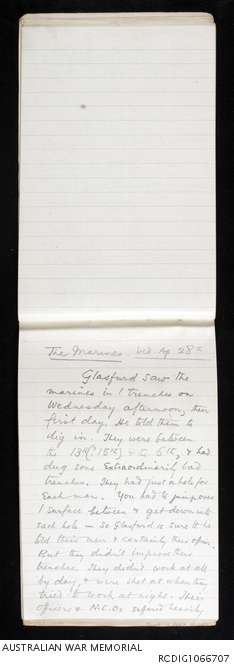 The Marines. Wed. Ap. 28th
Glasfurd saw the
marines in / trenches on
Wednesday afternoon, their
first day. He told them to
dig in. They were between
the 13th (15th) & the 6th, & had
dug some extraordinarily bad
trenches. They had just a hole for
each man. You had to jump over
/ surface between & get down into
each hole - So Glasfurd is sure he
told their men & certainly their officer.
But they didn't improve them
trenches. They didn't work at all
by day, & were shot at when they
tried to work at night. Their
officers & N.C.Os suffered heavily
AUSTRALIAN WAR MEMORIAL
RCDIG1066707